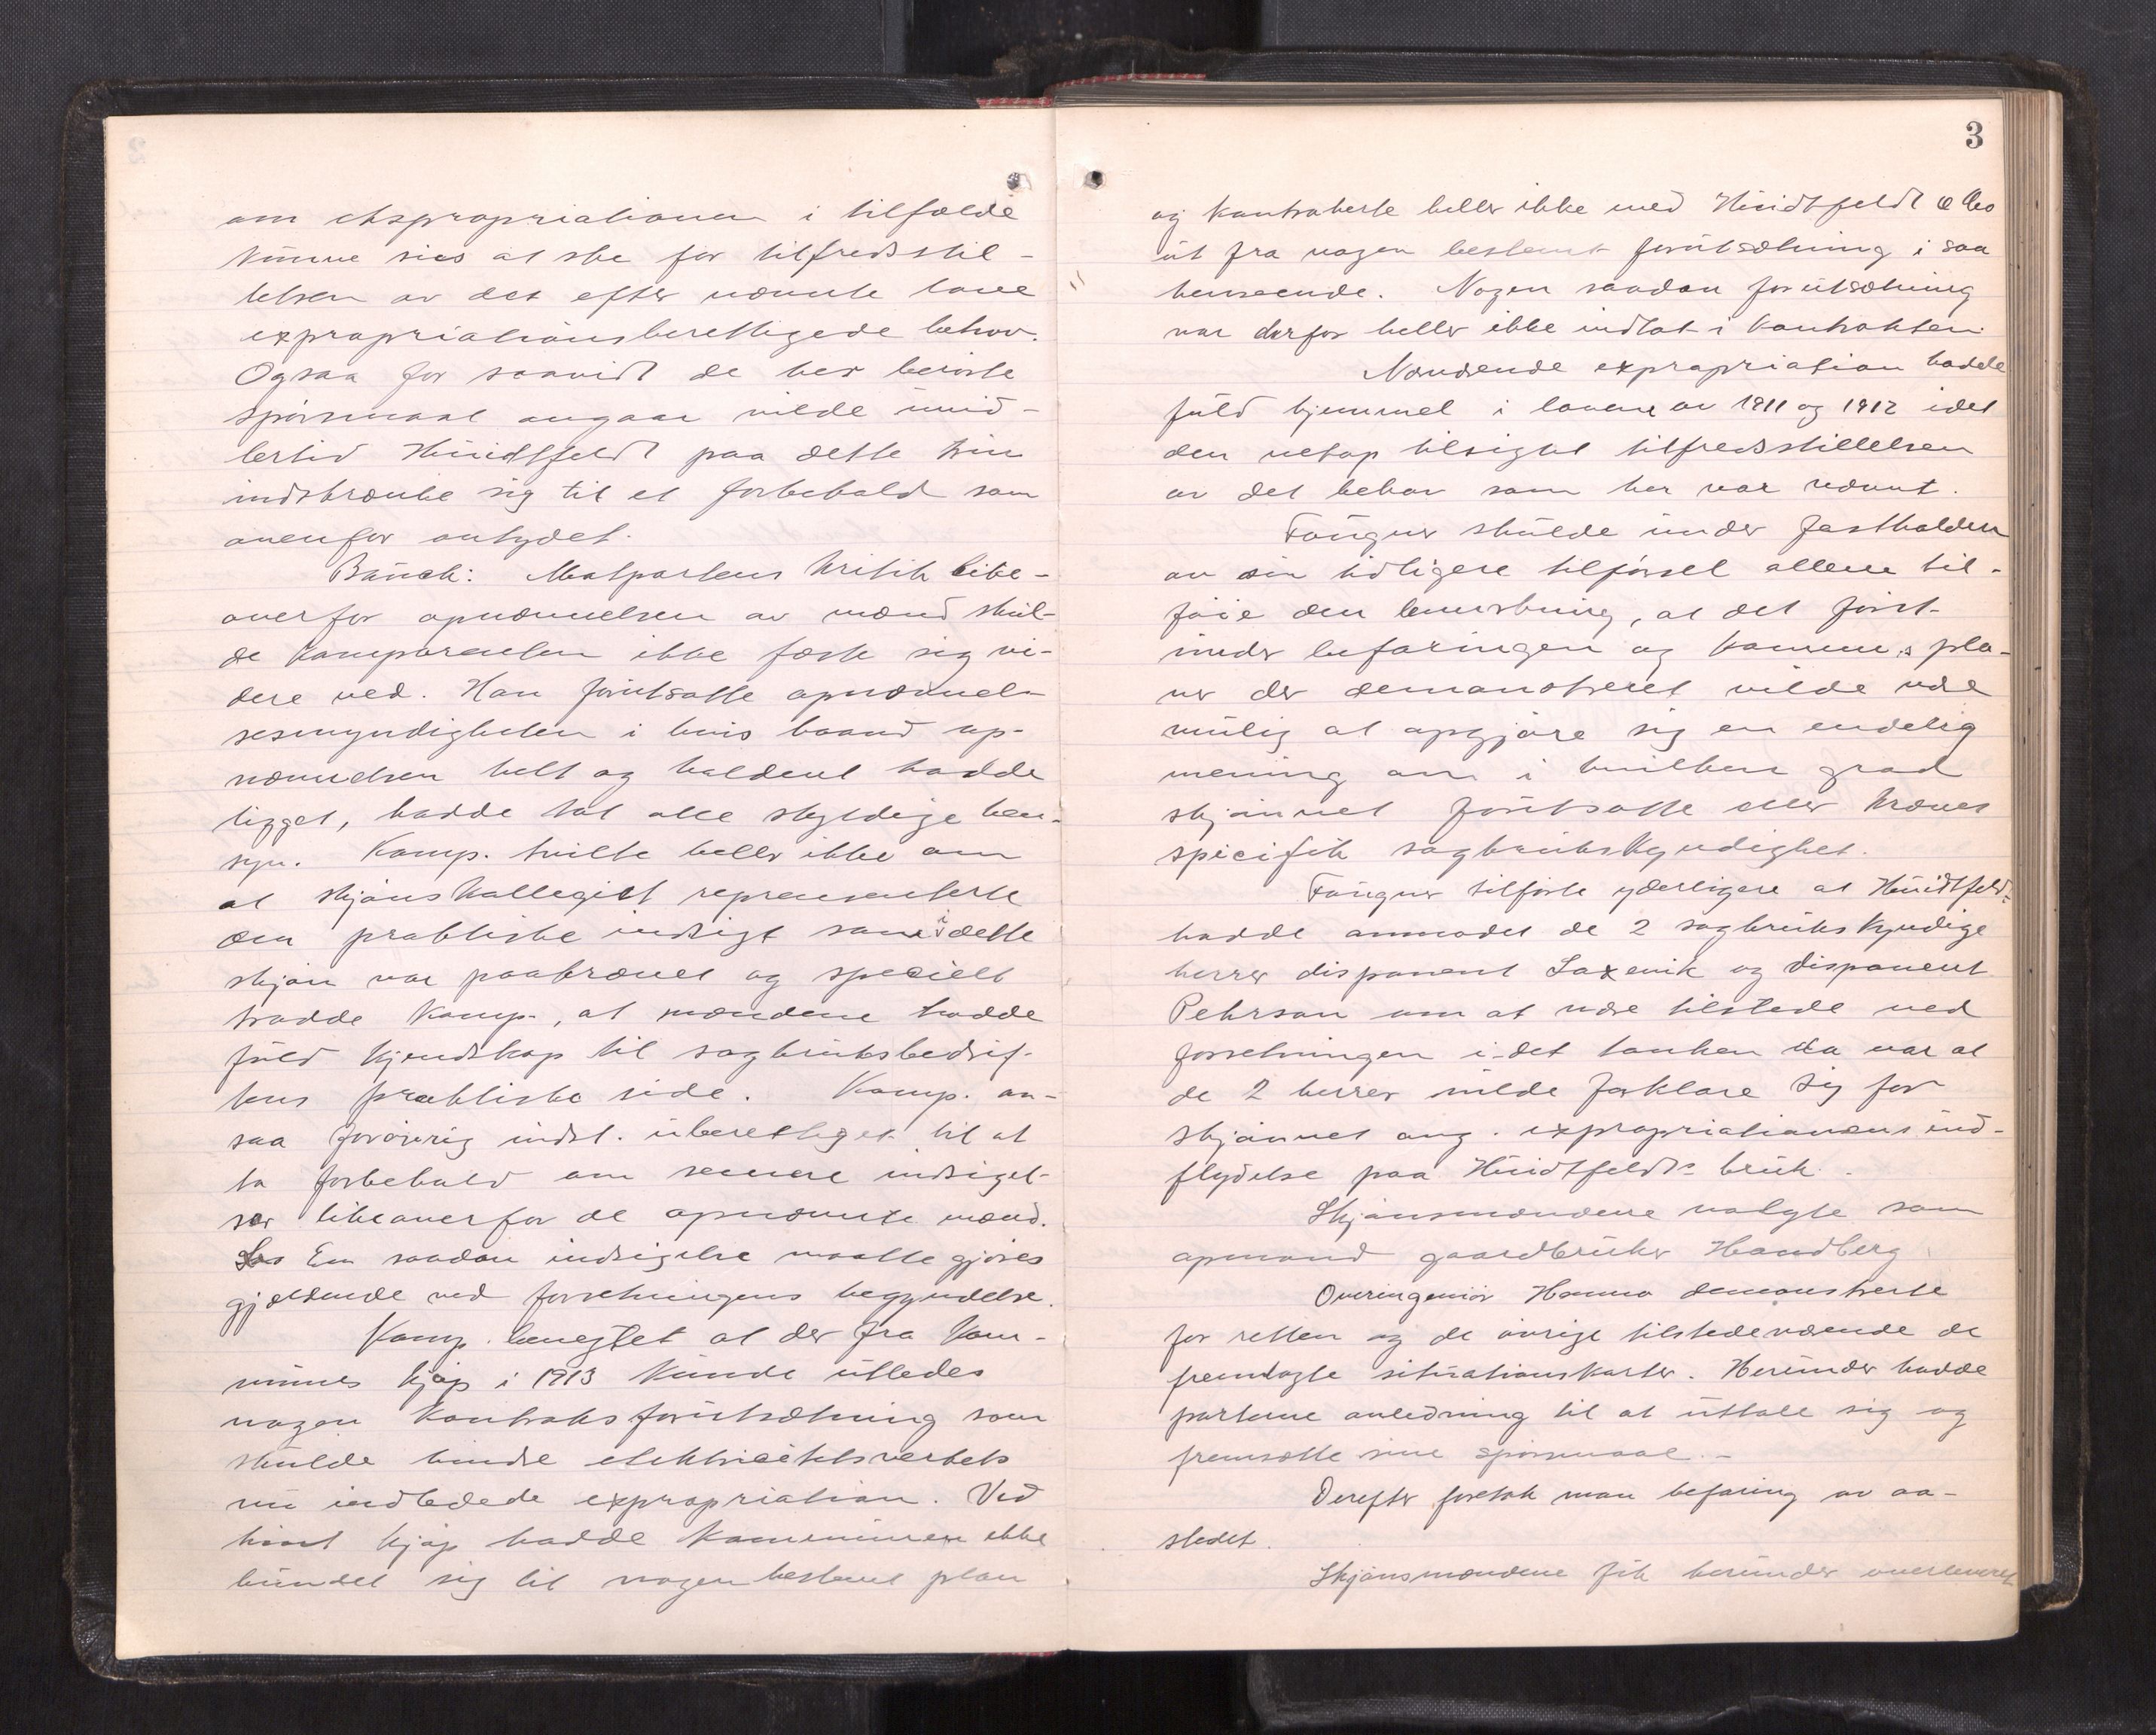 om ekspropriationen i tilfælde
kunne sies at ske for tilfredsstil-
lelsen av det efter nævnte love
expropriationsberettigede behov.
Ogsaa for saavidt de her berørte
spørsmaal angaar vilde imid-
lertid Huidtfeldt paa dette trin
indskrænke sig til et forbehold som
ovenfor antydet.
Bauck: Motpartens kritik like-
overfor opnævnelsen av mænd skul-
de komparenten ikke fæste sig vi-
dere ved. Han forutsatte opnævnel-
sesmyndigheten i hvis haand op-
nævnelsen helt og holdent hadde
ligget, hadde tat alle skyldige hen-
syn. Komp. tvilte heller ikke om
at skjønskollegiet repræsenterte
den praktiske indsigt som i dette
skjøn var paakrævet og specielt
trodde komp., at mændene hadde
fuld kjendskap til sagbruksbedrif-
tens praktiske side. Komp. an-
saa forøvrig indst. uberettiget til at
ta forbehold om senere indsigel-
ser likeoverfor de opnævnte mænd.
En saadan indsigelse maatte gjøres
gjældende ved forretningens begyndelse.
Komp. benegtet at der fra kom-
munes kjøp i 1913 kunde utledes
nogen kontraktsforutsætning som
skulde hindre elektricitetsverkets
nu indledede expropriation. Ved
hint kjøp hadde kommunen ikke
bundet sig til nogen bestemt plan
3
og kontraherte heller ikke med Huidtfeldt & Co
ut fra nogen bestemt forutsætning i saa
henseende. Nogen saadan forutsætning
var derfor heller ikke indtat i kontrakten.
Nærværende expropriation hadde
fuld hjemmel i lovene av 1911 og 1912 idet
den netop tilsigtet tilfredsstillelsen
av det behov som her var nævnt.
Fougner skulde under fastholden
av sin tidligere tilførsel allene til-
føie den bemerkning, at det først
under befaringen og kommunens pla-
ner der demonstreret vilde være
mulig at opgjøre sig en endelig
mening om i hvilken grad
skjønnet forutsatte eller krævet
spicifik sagbrukskyndighet.
Fougner tilførte yderligere at Huidtfeldt
hadde anmodet de 2 sagbrukskyndige
herrer disponent Saxevik og disponent
Pehrson om at være tilstede ved
forretningen i det tanken da var at
de 2 herrer vilde forklare sig for
skjønnet ang. expropriationens ind-
flydelse paa Huidtfeldts bruk.
Skjønsmændene valgte som
opmand gaardbruker Handberg.
Overingeniør Hanno demonstrerte
for retten og de øvrige tilstedeværende de
fremlagte situationskarter. Herunder hadde
parterne anledning til at uttale sig og
fremsætte sine spørsmaal.-
Derefter foretok man befaring av aa-
stedet.
Skjønsmændene fik herunder overleveret